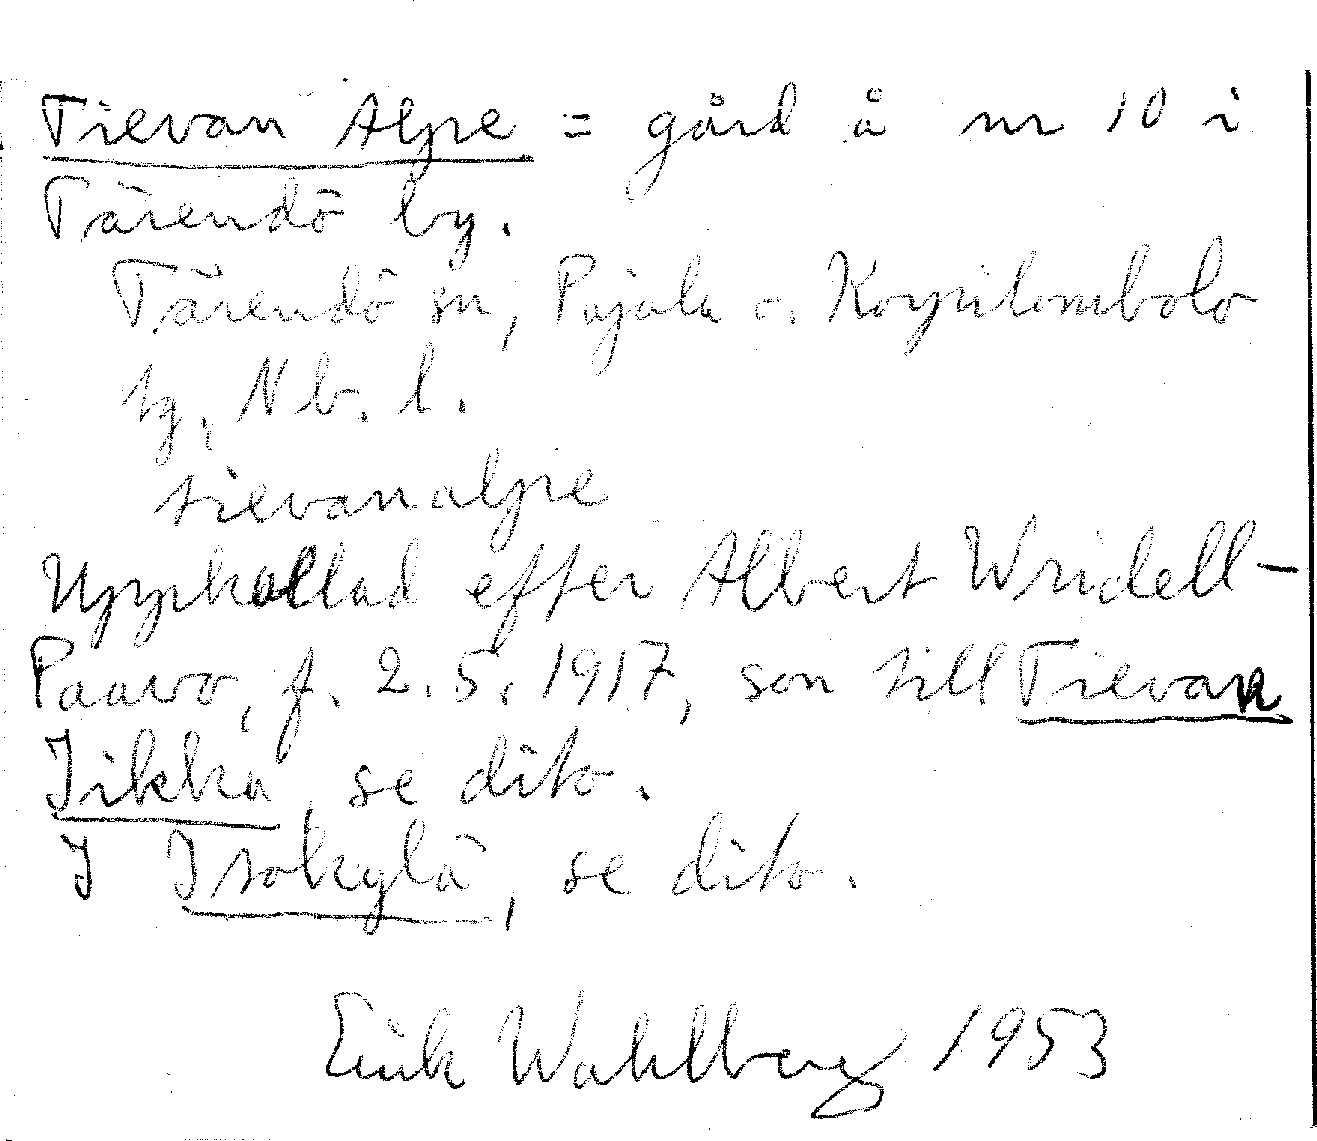 Tievan Alpe = gård å nr 10 i
Tärendö by.
Tärendö sn, Pajala o. Korpilombolo
tg, Nb. l.
tievanalpe
Uppkallad efter Albert Wridell-
Paavo, f. 2.5.1917, son till Tievan
Iikka, se dito.
I Isokylä, se dito.
Erik Wahlberg 1953